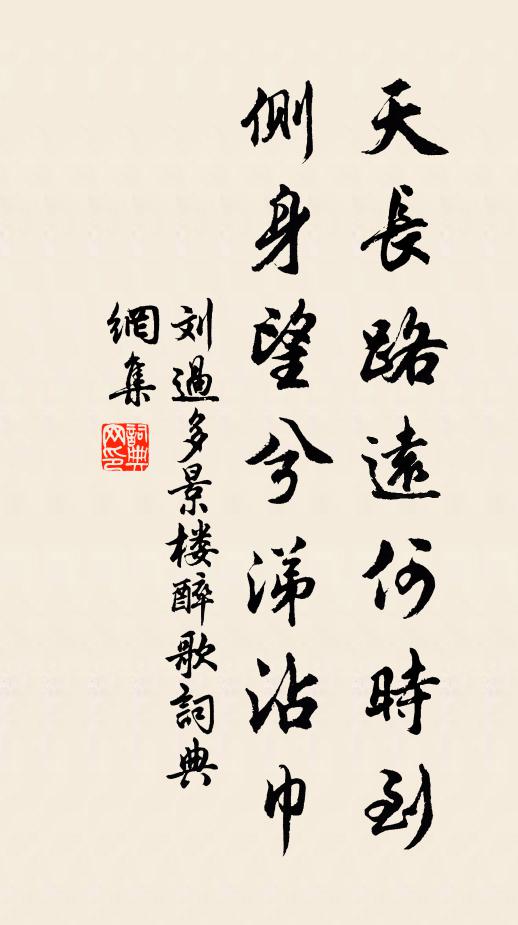 天長路遠何時到
側身望兮涕沾巾
刘過多景楼醉歌詞典
網集
詞典
网印